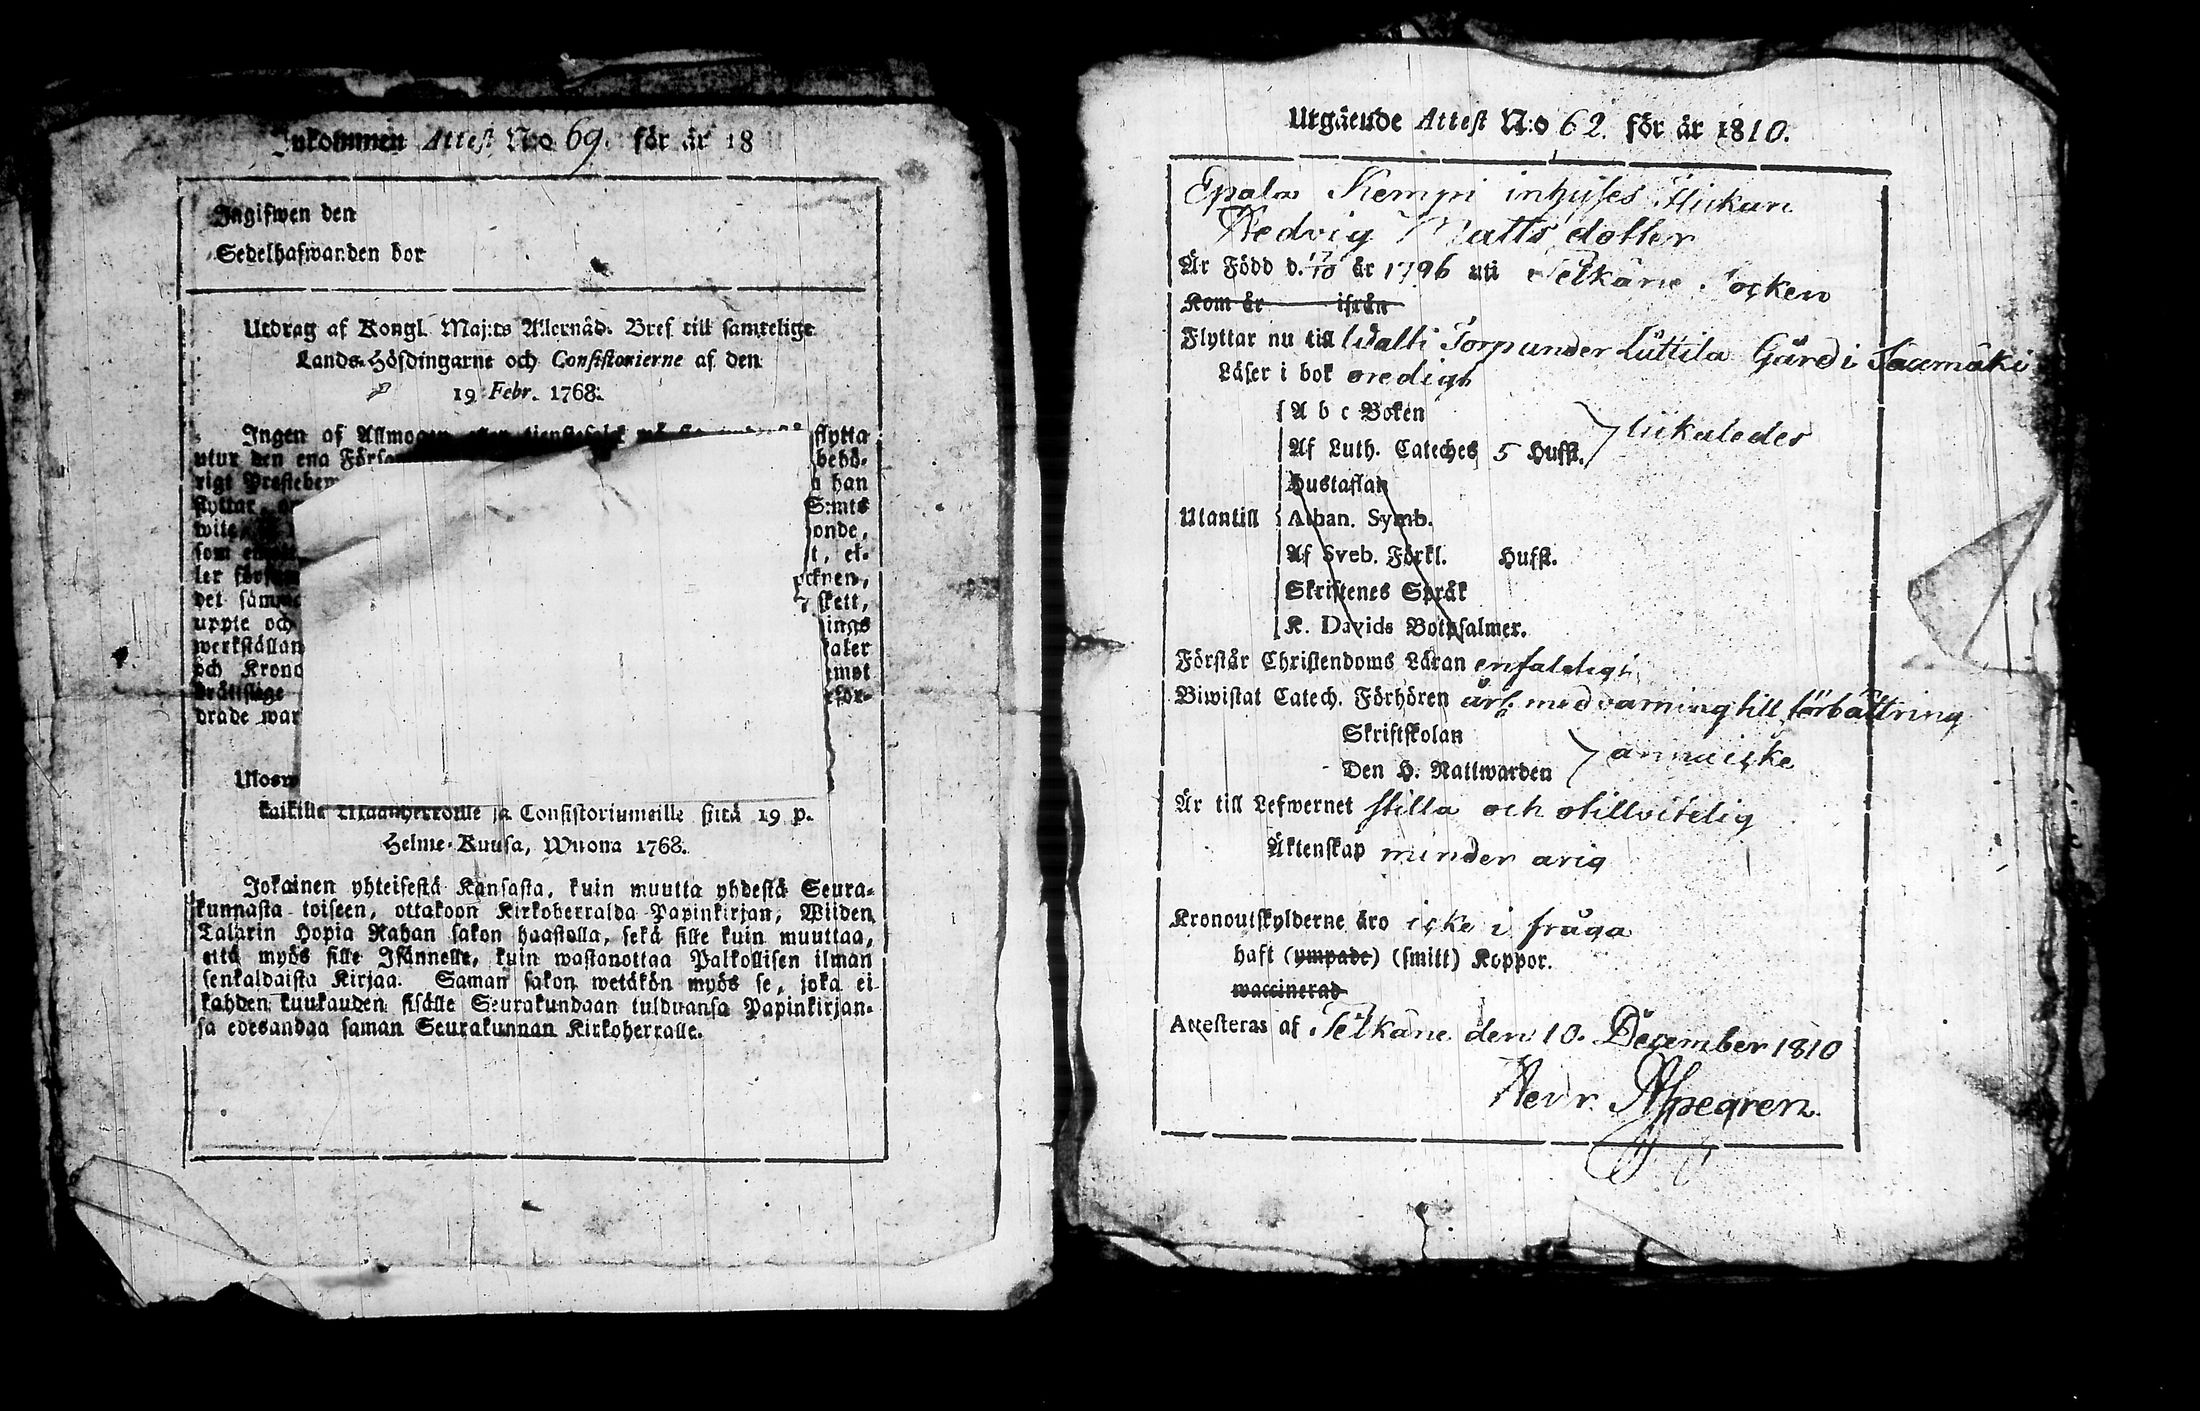 Inkommen Attest N:o 69. för år 18
Ingifwen den
Sedelhafwanden bor
Utdrag af Kongl. Maj:ts Allernåd. Bref till samtelige
Lands-Höfdingarne och Consistorierne af den
19 Febr. 1768.
Ingen af Allmogen flytta
utur den ena Förs behö-
rigt Prestebew han
flyttar S:mts
wite onde,
som t, el-
ler försum ocknen,
det sämm skett,
uppte och ings
werkställan aler
och Krono emot
drade war
kaikille Maanherroille ja Consistoriumeille siitä 19 p.
Helme-Kuusa, Wuona 1768.
Jokainen yhteisestä Kansasta, kuin muutta yhdestä Seura-
kunnasta toiseen, ottakoon Kirkoherralda Papinkirjan, Wiiden
Talarin Hopia Rahan sakon haastolla, sekä sille kuin muuttaa,
että myös sille Isännelle, kuin wastanottaa Palkollisen ilman
senkaldaista Kirjaa. Saman sakon wetäkön myös se, joka ei
kahden kuukauden sisälle Seurakundaan tulduansa Papinkirjan-
sa edesandaa saman Seurakunnan Kirkoherralle.
Utgående Attest N:o 62. för år 1810.
Epala Kempi inhyses Flickan
Hedvig Matts dotter
Är Född d. 17/10 år 1796 uti Pelkäne Socken
Kom år ifrån
Flyttar nu till Walli Torp under Luttila Gård i Sacemäki
Läser i bok oredigt
A b c Boken
Af Luth. Cateches 5 Hufst. likaledes
Hustaflan
Utantill Athan. Symb.
Af Sveb. Förkl. Hufst.
Skriftenes Språk
K. Davids Botpsalmer.
Förstår Christendoms Läran enfaldigt
Biwistat Catech. Förhören årl. med varning till förbättring
Skriftskolan
Den H. Nattwarden annu icke
Är till Lefwernet stilla och otillvitelig
Äktenskap minder arig
Kronoutskylderne äro icke i fråga
haft (ympade) (smitt) Koppor.
waccinerad
Attesteras af Pelkäne den 10. December 1810
Hevr. Alpegren.